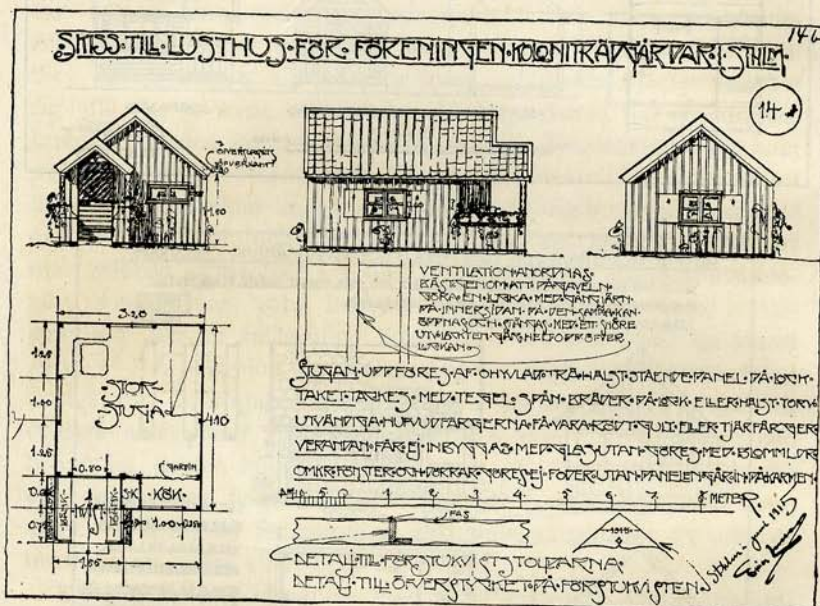 146
SKISS·TILL·LUSTHUS·FÖR·FÖRENINGEN·KOLONITRÄDGÅRDAR·I·STHLM·
14
1.10
VENTILATION·ANORDNAS·
BÄST·GENOM·ATT·PÅ·GAVELN·
GÖRA·EN·LUCKA·MED·GÅNGJÄRN·
PÅ·INNERSIDAN·PÅ·DEN·SAMMA·KAN·
ÖPPNAS·OCH·STÄNGAS·MED·ETT·SNÖRE
LUCKAN·
3.20
STOR
STUGA·
4.10
1.25
1.00
1.25
0.80
GARDIN
SK
KÖK·
BÄNK
BÄNK
0.75
1.00
STUGAN·UPPFÖRES·AF·OHYVLAD·TRÄ·HÄLST·STÅENDE·PANEL·PÅ·LOCK·
TAKET·TÄCKES·MED·TEGEL·SPÅN·BRÄDER·PÅ·LOCK·ELLER·HÄLST·TORV·
UTVÄNDIGA·HUFVUDFÄRGERNA·FÅ·VARA·RÖDT·GULT·ELLER·TJÄRFÄRGER
VERANDAN·FÅR·EJ·INBYGGAS·MED·GLAS·UTAN·GÖRES·MED·BLOMMLDR
OMKR·FÖNSTER·OCH·DÖRRAR·GÖRES·EJ·FODER·UTAN·PANELEN·GÅR·IN·PÅ·KARMEN·
5 0 1 2 3 4 5 6 7 8 METER
FAS
1915
DETALJ·TILL·FÖRSTUKVISTSTOLPARNA·
DETALJ·TILL·ÖFVERSTYCKET·PÅ·FÖRSTUKVISTEN·
Sthlm i juni 1915